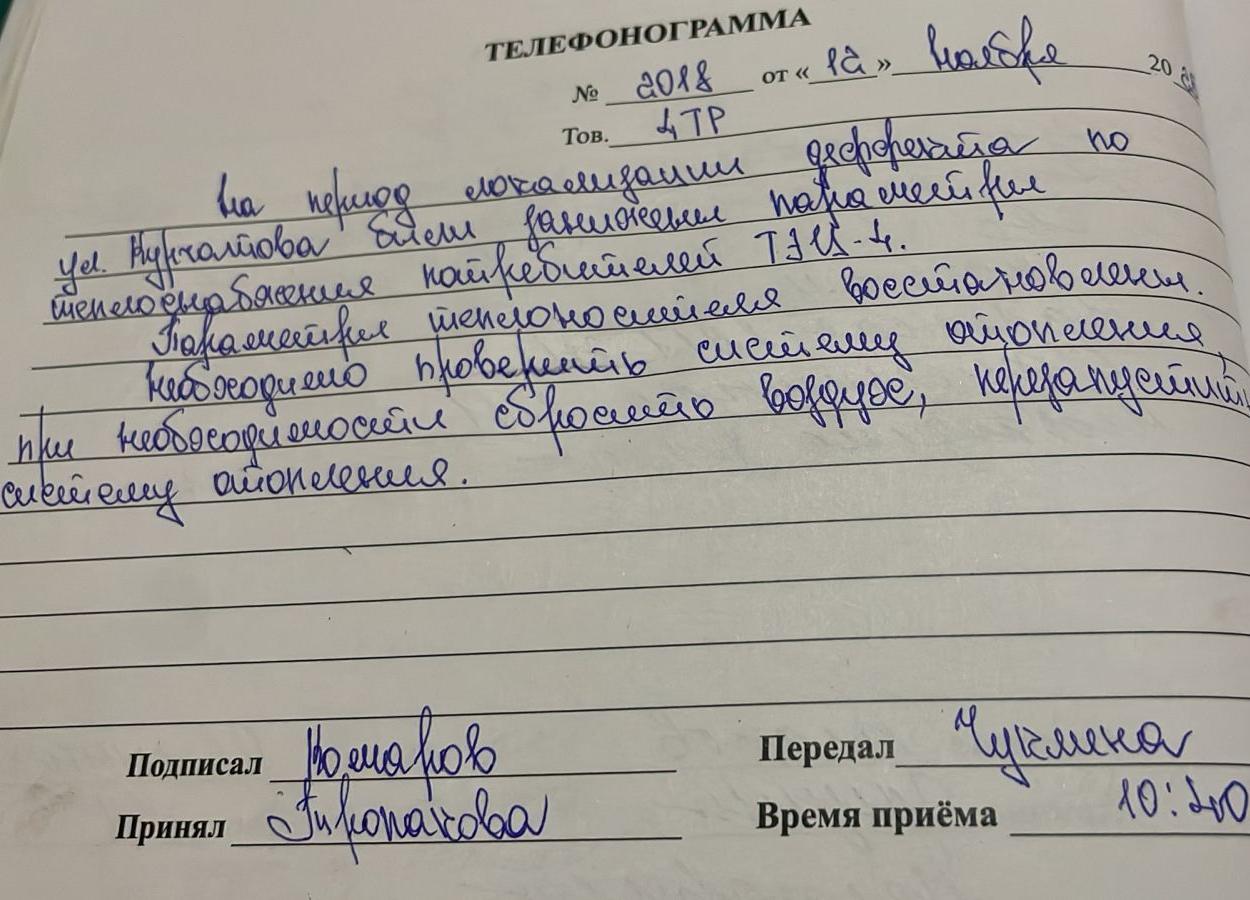 ТЕЛЕФОНОГРАММА
№ 2018 от «12» Ноября 20
Тов. 4ТР
На период локализации деффекта по
ул. Нуркатова были занижены параметры
теплоснабжения потребителей ТЭЦ-4.
Параметры теплоносителя восстановлены.
Необходимо проверить систему отопления,
при необходимости сбросить воздух, перезапустить
систему отопления.
Подписал Комаров Передал Чукмина
Принял Время приёма 10: